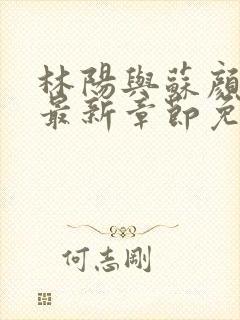 林陽與蘇顏
最新章節免
何志剛